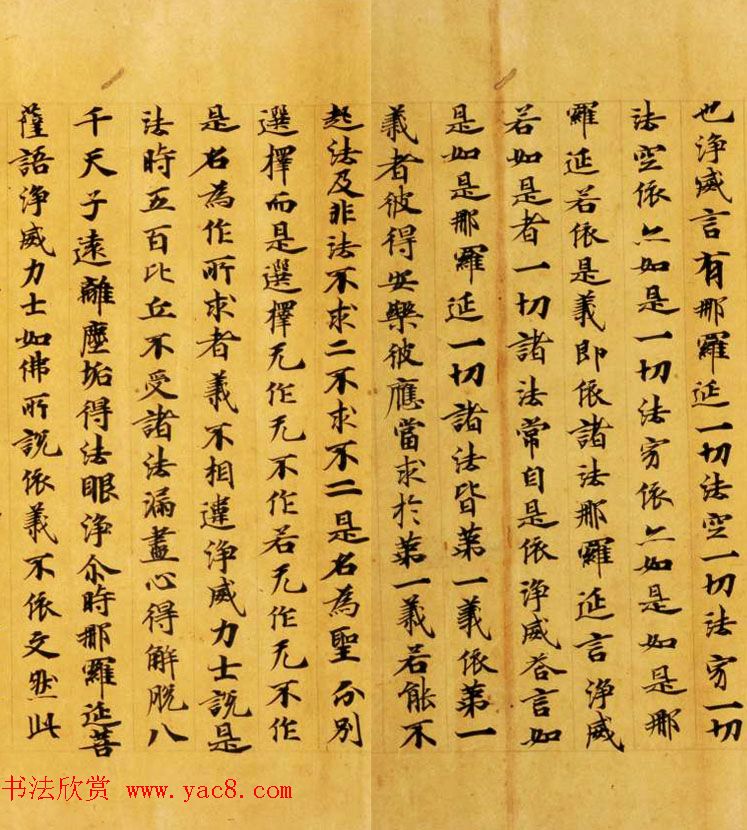 也淨威言有那羅延一切法空一切法穷一切
法空依亦如是一切法穷依亦如是如是那
羅延若依是義即依諸法那羅延言淨威
若如是者一切諸法常自是依淨威荅言如
是如是那羅延一切諸法皆苐一義依苐一
義者彼得安樂彼應當求於苐一義若能不
起法及非法不求二不求不二是名為聖分別
選擇而是選擇无作无不作若无作无不作
是名為作所求者義不相違淨威力士說是
法時五百比丘不受諸法漏盡心得解脫八
千天子遠離塵垢得法眼淨尒時那羅延菩
薩語淨威力士如佛所說依義不依文然此
书法欣赏 www.yac8.com